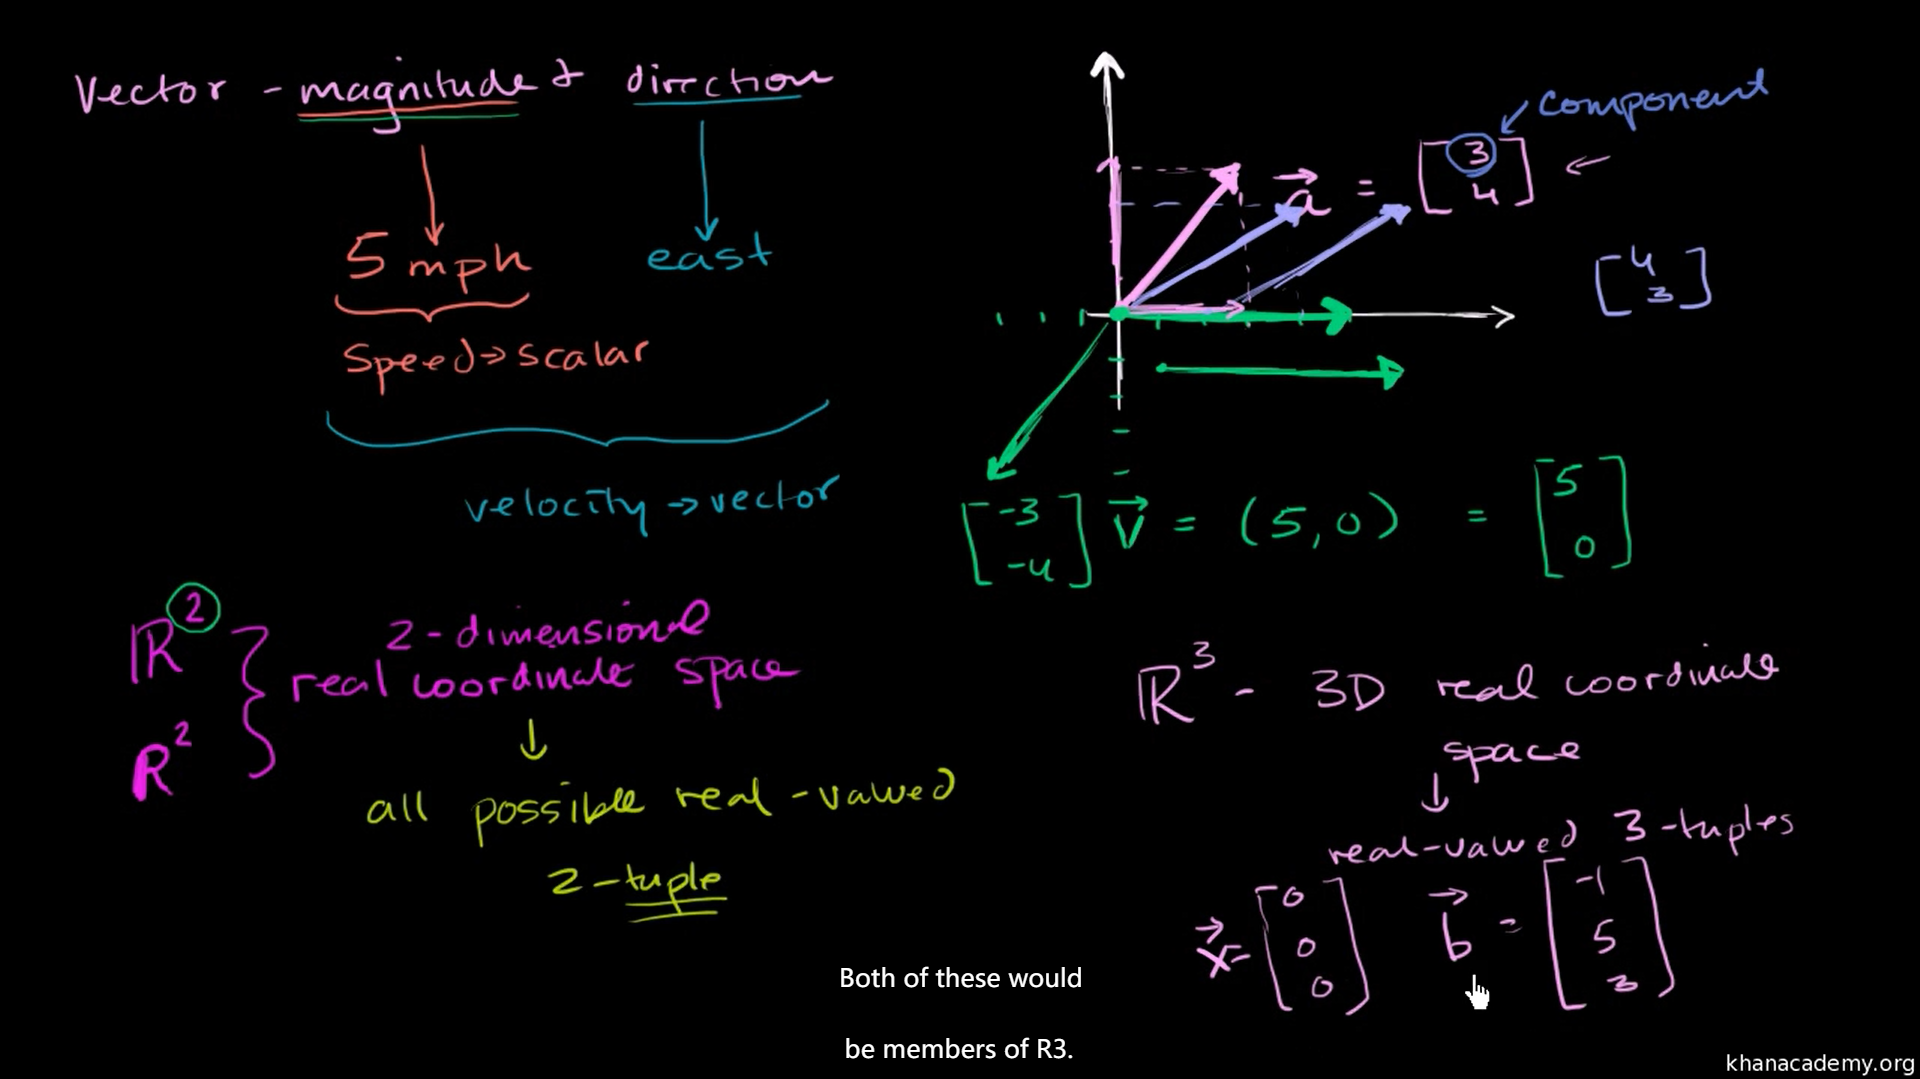 Vector - magnitude & direction
5 mph
east
Speed → scalar
velocity → vector
component
a = [3
4]
[4
3]
[-3
-4]
v = (5,0) = [5
0]
ℝ² } 2-dimensional
R² real coordinate space
all possible real-valued
2-tuple
ℝ³ - 3D real coordinate
space
real-valued 3-tuples
x = [0
0
0]
b = [-1
5
3]
Both of these would
be members of R3.
khanacademy.org